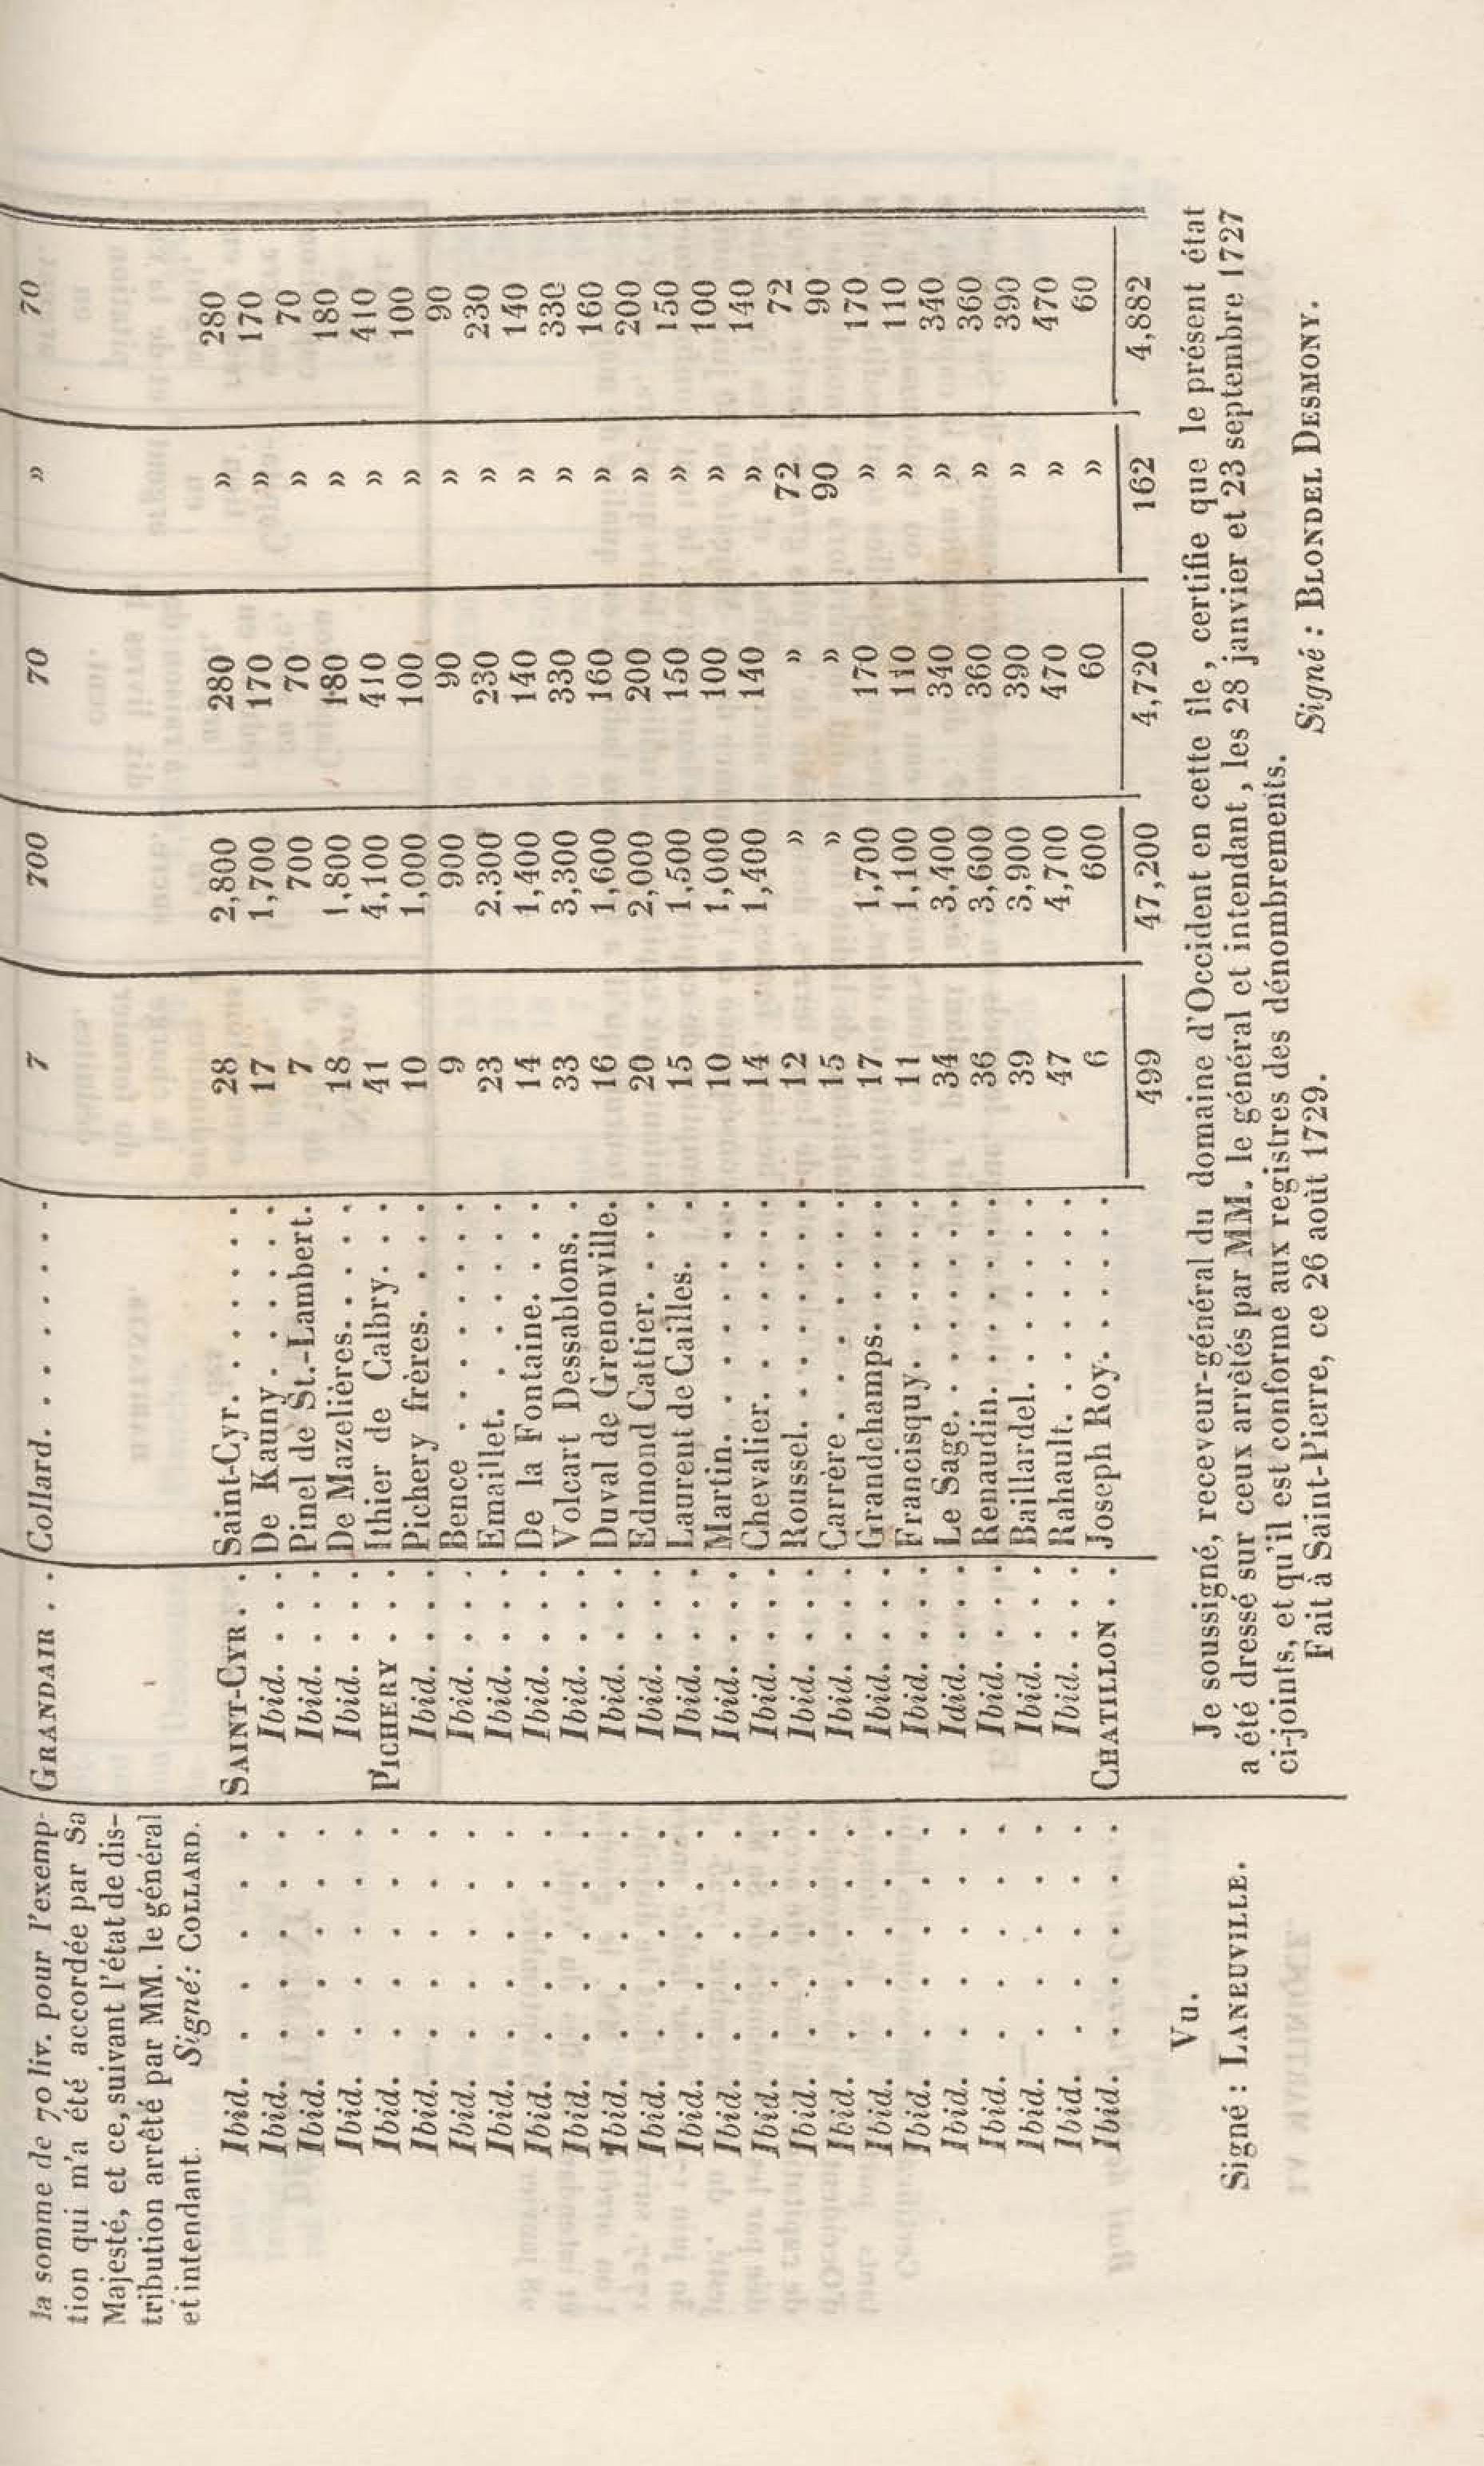 la somme de 70 liv. pour l'exemp- GRANDAIR . . Collard. . . . . . . 7 700 70 » 70
tion qui m'a été accordée par Sa
Majesté, et ce, suivant l'état de dis-
tribution arrêté par MM. le général
et intendant. Signé: COLLARD.
Ibid. . . . . . . SAINT-CYR. . Saint-Cyr. . . . . . 28 2,800 280 » 280
Ibid. . . . . . . Ibid. . . . De Kauny. . . . . . 17 1,700 170 » 170
Ibid. . . . . . . Ibid. . . . Pinel de St.-Lambert. 7 700 70 » 70
Ibid. . . . . . . Ibid. . . . De Mazelières. . . . . 18 1,800 180 » 180
Ibid. . . . . . . PICHERY . . . Ithier de Calbry. . . 41 4,100 410 » 410
Ibid. . . . . . . Ibid. . . . Pichery frères. . . . 10 1,000 100 » 100
Ibid. . . . . . . Ibid. . . . Bence . . . . . . . 9 900 90 » 90
Ibid. . . . . . . Ibid. . . . Emaillet. . . . . . . 23 2,300 230 » 230
Ibid. . . . . . . Ibid. . . . De la Fontaine. . . . 14 1,400 140 » 140
Ibid. . . . . . . Ibid. . . . Volcart Dessablons. . 33 3,300 330 » 330
Ibid. . . . . . . Ibid. . . . Duval de Grenonville. 16 1,600 160 » 160
Ibid. . . . . . . Ibid. . . . Edmond Cattier. . . . 20 2,000 200 » 200
Ibid. . . . . . . Ibid. . . . Laurent de Cailles. . 15 1,500 150 » 150
Ibid. . . . . . . Ibid. . . . Martin. . . . . . . 10 1,000 100 » 100
Ibid. . . . . . . Ibid. . . . Chevalier. . . . . . 14 1,400 140 » 140
Ibid. . . . . . . Ibid. . . . Roussel. . . . . . . 12 » » 72 72
Ibid. . . . . . . Ibid. . . . Carrère . . . . . . . 15 » » 90 90
Ibid. . . . . . . Ibid. . . . Grandchamps. . . . . 17 1,700 170 » 170
Ibid. . . . . . . Ibid. . . . Francisquy. . . . . . 11 1,100 110 » 110
Ibid. . . . . . . Idid. . . . Le Sage. . . . . . . 34 3,400 340 » 340
Ibid. . . . . . . Ibid. . . . Renaudin. . . . . . 36 3,600 360 » 360
Ibid. . . . . . . Ibid. . . . Baillardel. . . . . . 39 3,900 390 » 390
Ibid. . . . . . . Ibid. . . . Rahault. . . . . . . 47 4,700 470 » 470
Ibid. . . . . . . CHATILLON . . Joseph Roy. . . . . . 6 600 60 » 60
499 47,200 4,720 162 4,882
Vu.
Signé : LANEUVILLE.
Je soussigné, receveur-général du domaine d'Occident en cette île, certifie que le présent état
a été dressé sur ceux arrêtés par MM. le général et intendant, les 28 janvier et 23 septembre 1727
ci-joints, et qu'il est conforme aux registres des dénombrements.
Fait à Saint-Pierre, ce 26 août 1729. Signé : BLONDEL DESMONY.